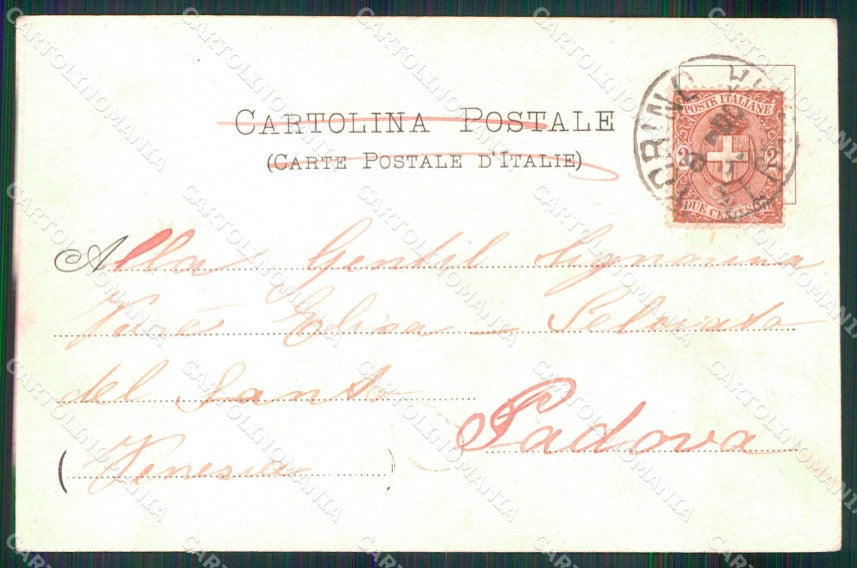 CARTOLINA POSTALE
(CARTE POSTALE D'ITALIE)
POSTE ITALIANE
2 2
DUE CENTESIMI
TORINO
Alla Gentil Signorina
Varè Elisa – Selciato
del Santo
Padova
(Venezia)
CARTOLINOMANIA